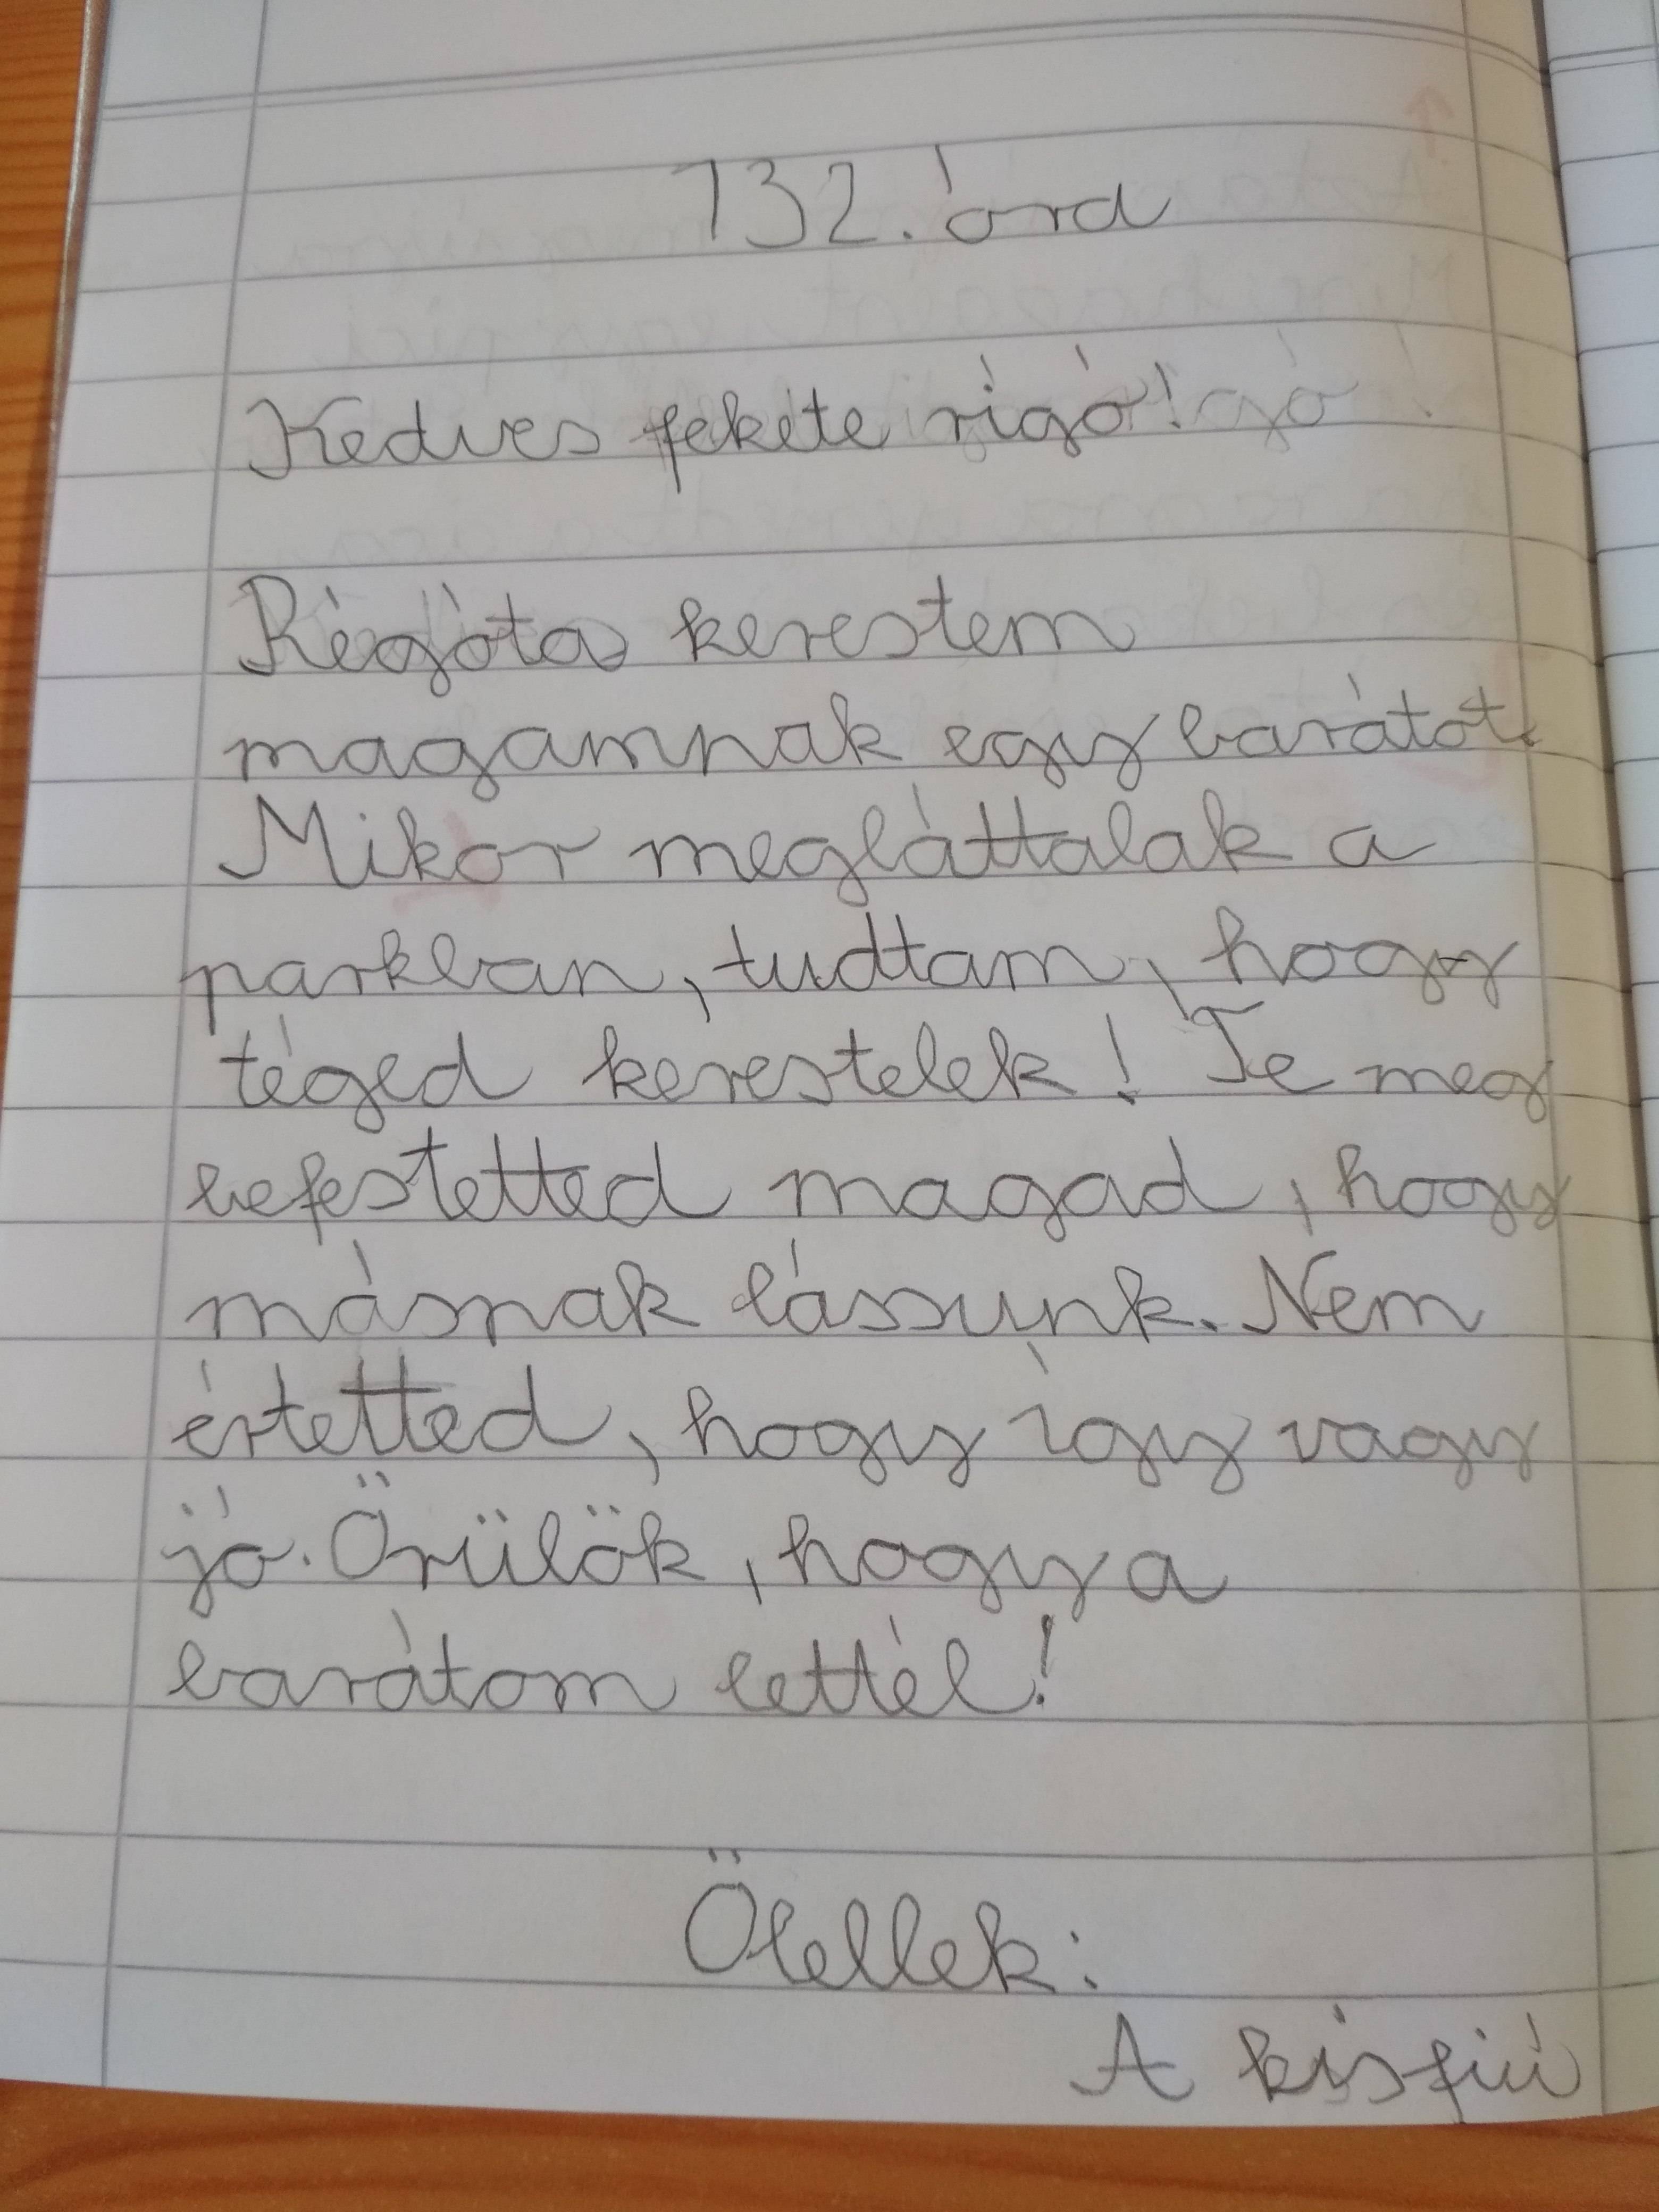 132. óra
Kedves fekete rigó!
Régóta kerestem
magamnak egy barátot.
Mikor megláttalak a
parkban, tudtam, hogy
téged kerestelek! Te meg
befestetted magad, hogy
másnak lássunk. Nem
értetted, hogy így vagy
jó. Örülök, hogy a
barátom lettél!
Ölellek:
A kisfiú